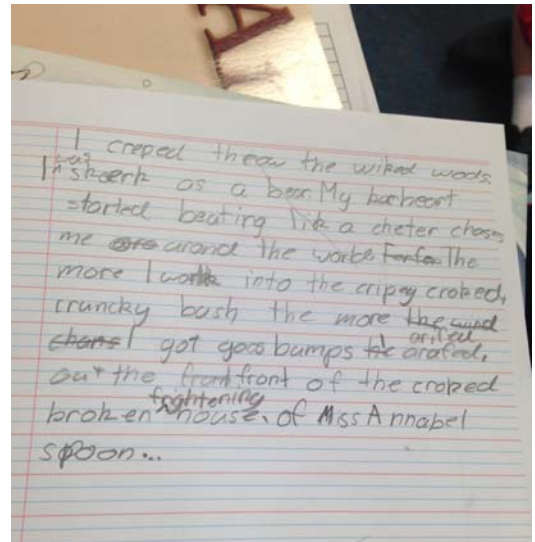 A
I creped throw the wiked woods.
I was skeerk as a bear. My harheart
started beating like a cheter chases
me around the worke. The
more I work into the cripey crobed,
cruncky bush the more
I got goosbumps arifed
out the front of the crobed
broken frightening house. of Miss Annabel
spoon...